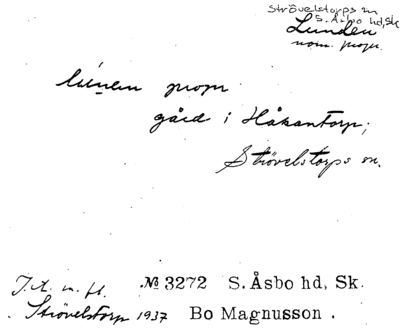 Strövelstorps sn
S. Åsbo hd, Sk
Lunden
nom. propr.
lúnen propr
gård i Håkantorp;
Strövelstorps sn.
J.A. m. fl. № 3272 S. Åsbo hd, Sk.
Strövelstorp 1937 Bo Magnusson.